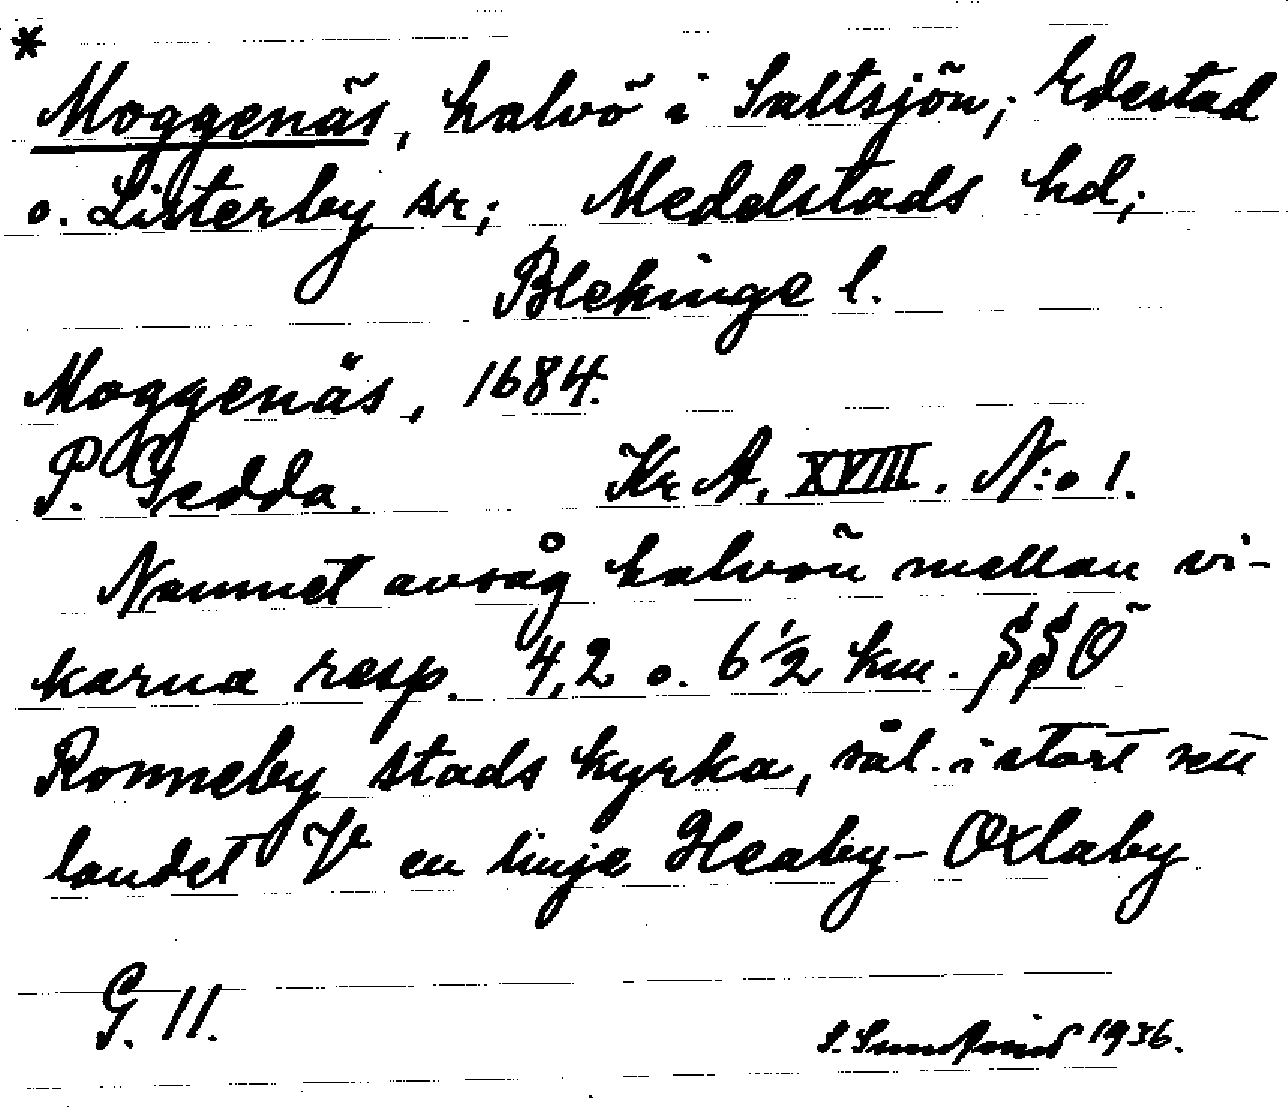 *
Moggenäs, halvö i Saltsjön; Edestad
o. Listerby sr; Medelstads hd;
Blekinge l.
Moggenäs, 1684.
P. Gedda. Kr. A. XVIII. N:o 1.
Namnet avsåg halvön mellan vi-
karna resp. 4,2 o. 6 1/2 km. SSÖ
Ronneby stads kyrka, sål. i stort sett
landet V en linje Heaby-Oxlaby
G. 11.
1936.